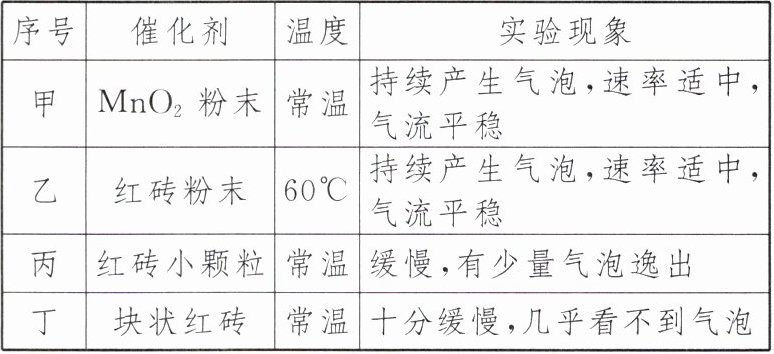 序号 催化剂 温度 实验现象
甲 MnO₂ 粉末 常温 持续产生气泡,速率适中,
气流平稳
乙 红砖粉末 60℃ 持续产生气泡,速率适中,
气流平稳
丙 红砖小颗粒 常温 缓慢,有少量气泡逸出
丁 块状红砖 常温 十分缓慢,几乎看不到气泡